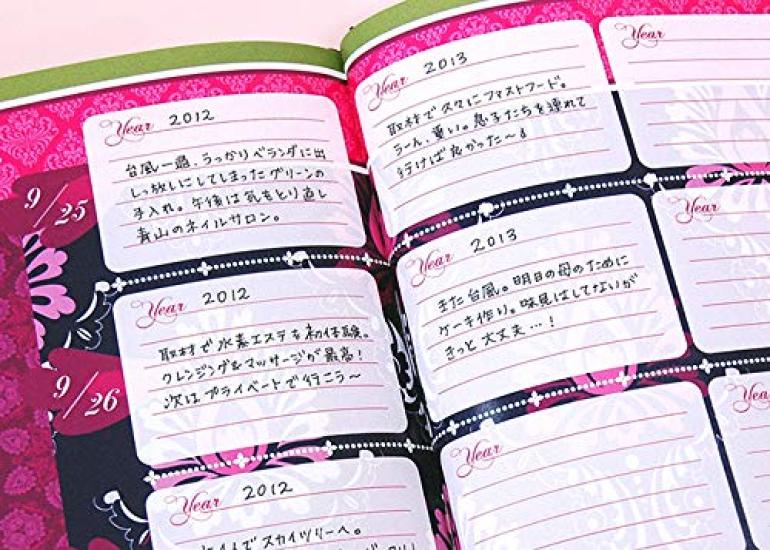 9/25
Year 2012
台風一過、うっかりベランダに出
しっ放しにしてしまったグリーンの
手入れ。午後は気をとり直し
青山のネイルサロン。
Year 2013
取材で久々にファストフード。
うーん、重い。息子たちを連れて
行けば良かった〜
Year
9/26
Year 2012
取材で水素エステを初体験。
クレンジング&マッサージが最高!
次はプライベートで行こう〜
Year 2013
また台風。明日の母のために
ケーキ作り。味見はしてないが
きっと大丈夫…!
Year
Year 2012
でスカイツリーへ。
Year
Year